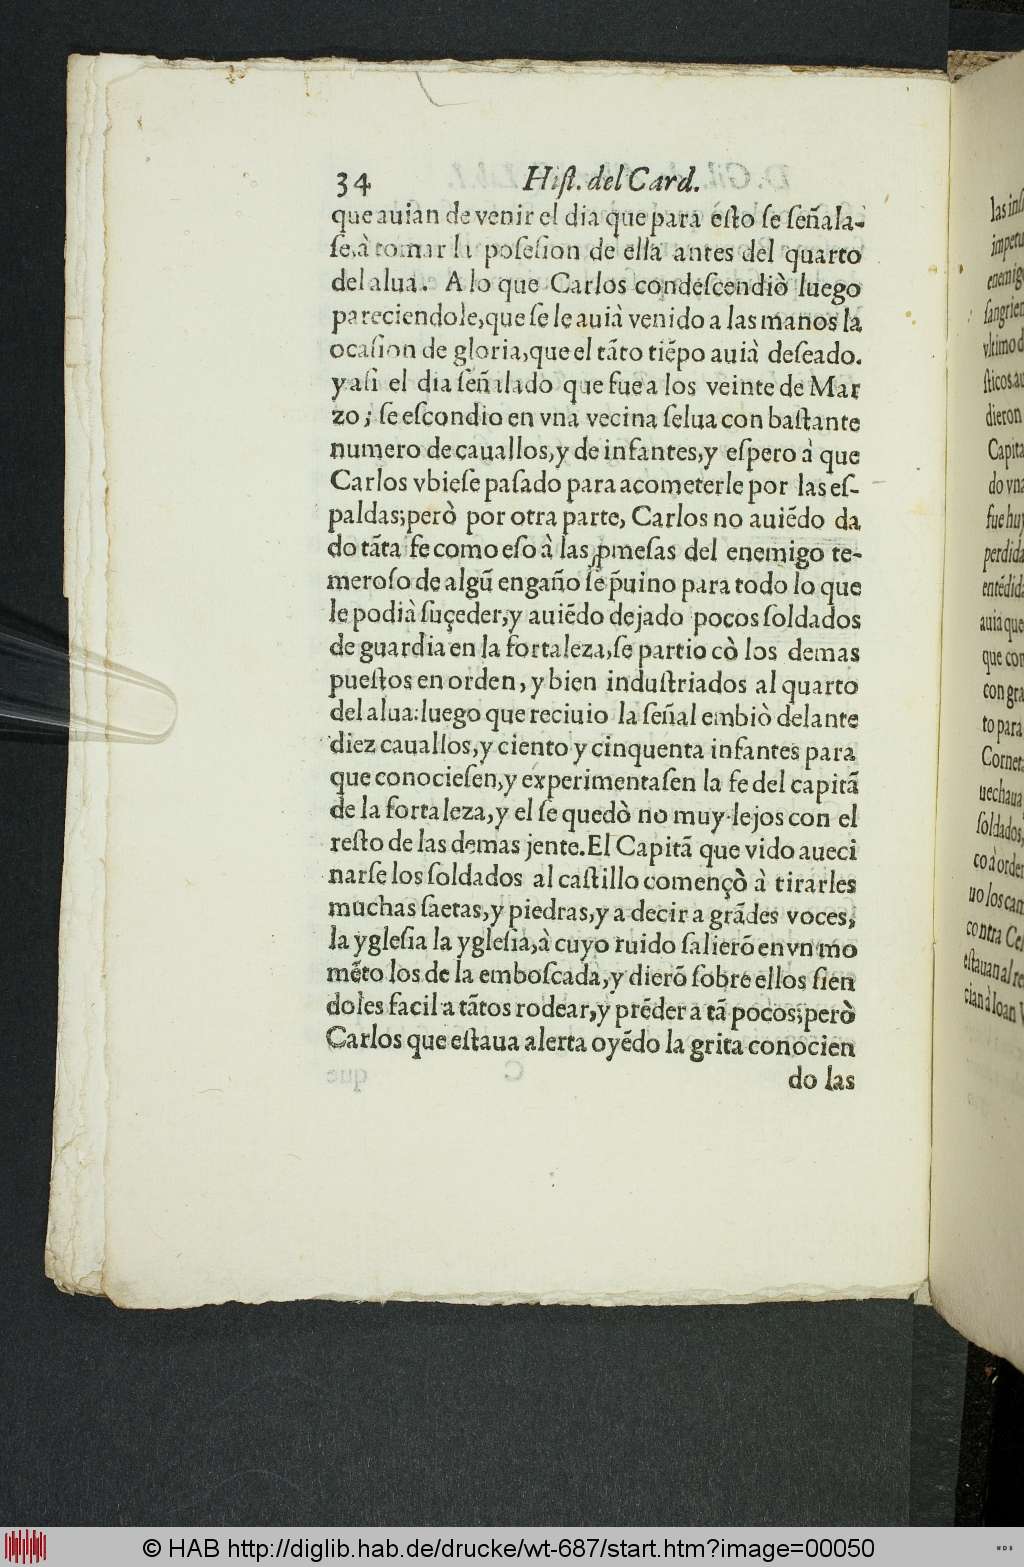 34 Hiſt. del Card.
que auian de venir el dia que para eſto ſe ſeñala-
ſe,à tomar la poſeſion de ella antes del quarto
del alua. A lo que Carlos condeſcendiò luego
pareciendole,que ſe le auià venido a las manos la
ocaſion de gloria,que el tãto tiẽpo auià deſeado.
y aſi el dia ſeñalado que fue a los veinte de Mar
zo; ſe eſcondio en vna vecina ſelua con baſtante
numero de cauallos,y de infantes,y eſpero à que
Carlos vbieſe paſado para acometerle por las eſ-
paldas;però por otra parte, Carlos no auiẽdo da
do tãta fe como eſo à las ꝓmeſas del enemigo te-
meroſo de algũ engaño ſe p̃uino para todo lo que
le podià ſuçeder,y auiẽdo dejado pocos ſoldados
de guardia en la fortaleza,ſe partio cò los demas
pueſtos en orden, y bien induſtriados al quarto
del alua:luego que reciuio la ſeñal embiò delante
diez cauallos,y ciento y cinquenta infantes para
que conocieſen,y experimentaſen la fe del capitã
de la fortaleza,y el ſe quedò no muy lejos con el
reſto de las demas jente.El Capitã que vido aueci
narſe los ſoldados al caſtillo començò à tirarles
muchas ſaetas,y piedras,y a decir a grãdes voces,
la ygleſia la ygleſia,à cuyo ruido ſalierõ en vn mo
mẽto los de la emboſcada,y dierõ ſobre ellos ſien
doles facil a tãtos rodear,y prẽder a tã pocos;però
Carlos que eſtaua alerta oyẽdo la grita conocien
do las
las inſ
impetu
enemigo
ſangrien
vltimo d
ſticos au
dieron
Capita
do vna
fue huy
perdida
entẽdida
auià que
que con
con gra
to para
Corneta
uechaua
ſoldados,
co à orden
uo los cam
contra Ce
eſtauan al re
cian à Ioan V
© HAB http://diglib.hab.de/drucke/wt-687/start.htm?image=00050